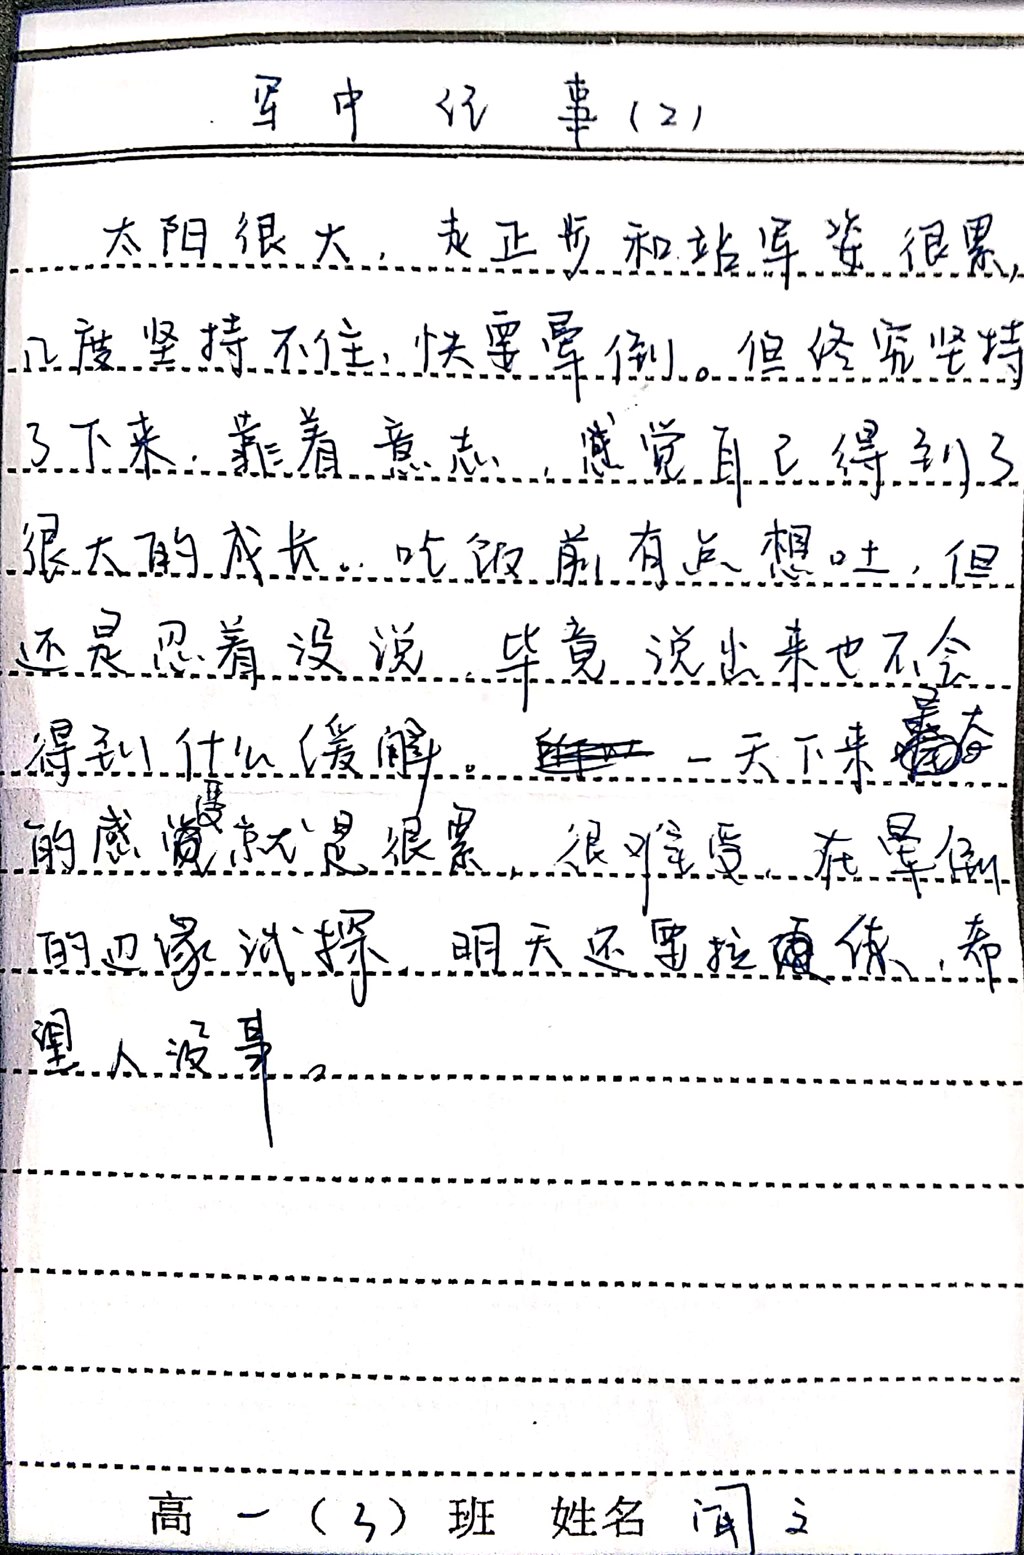 军中纪事(2)
太阳很大,走正步和站军姿很累,
几度坚持不住,快要晕倒。但终究坚持
了下来,靠着意志,感觉自己得到了
很大的成长。吃饭前有点想吐,但
还是忍着没说,毕竟说出来也不会
得到什么缓解。一天下来最大
的感受就是很累,很难受,在晕倒
的边缘试探,明天还要拉练,希
望人没事。
高一(3)班 姓名 闻文